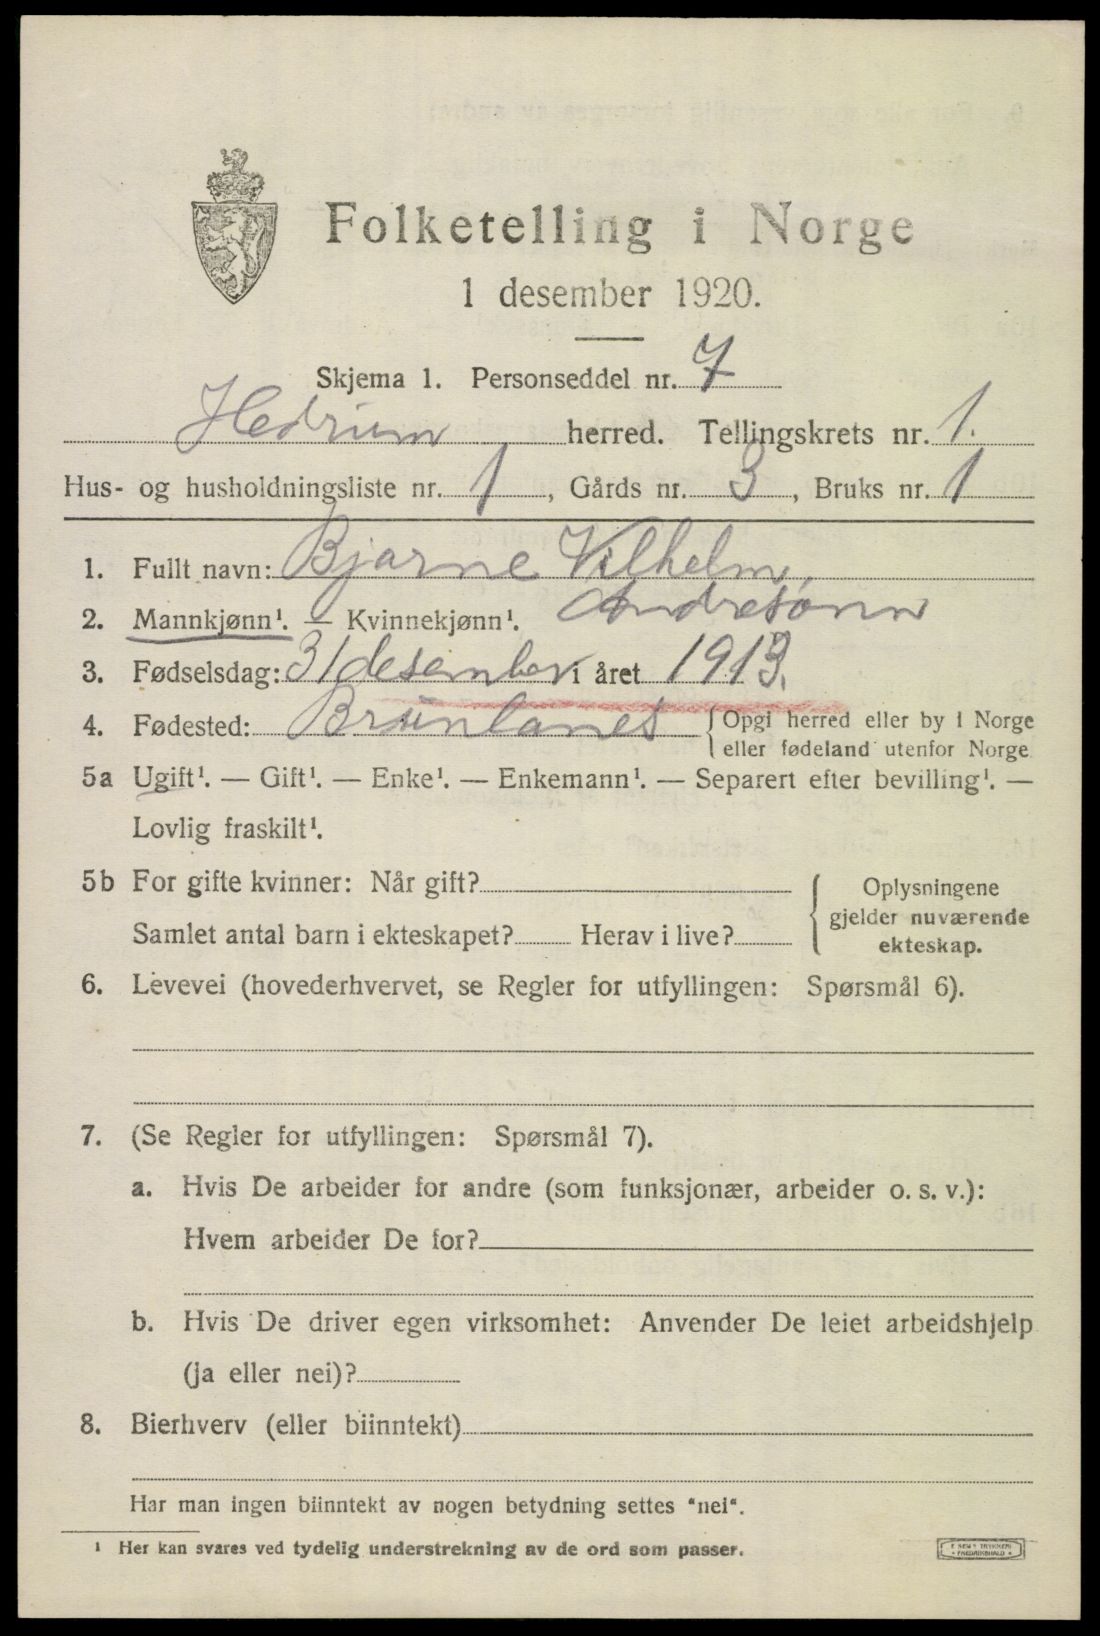 Folketelling i Norge
1 desember 1920.
Skjema 1. Personseddel nr. 7
Hedrum herred. Tellingskrets nr. 1.
Hus- og husholdningsliste nr. 1, Gårds nr. 3, Bruks nr. 1
1. Fullt navn: Bjarne Vilhelm
Andresønn
2. Mannkjønn¹. — Kvinnekjønn¹.
3. Fødselsdag: 31 desember i året 1913.
4. Fødested: Brunlanes {Opgi herred eller by i Norge
eller fødeland utenfor Norge
5a Ugift¹. — Gift¹. — Enke¹. — Enkemann¹. — Separert efter bevilling¹. —
Lovlig fraskilt¹.
5b For gifte kvinner: Når gift?
Samlet antal barn i ekteskapet? Herav i live?
{ Oplysningene
gjelder nuværende
ekteskap.
6. Levevei (hovederhvervet, se Regler for utfyllingen: Spørsmål 6).
7. (Se Regler for utfyllingen: Spørsmål 7).
a. Hvis De arbeider for andre (som funksjonær, arbeider o. s. v.):
Hvem arbeider De for?
b. Hvis De driver egen virksomhet: Anvender De leiet arbeidshjelp
(ja eller nei)?
8. Bierhverv (eller biinntekt)
Har man ingen biinntekt av nogen betydning settes "nei".
¹ Her kan svares ved tydelig understrekning av de ord som passer.